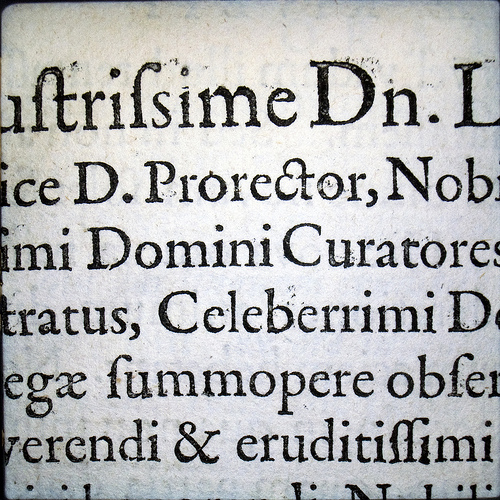 uſtriſsime Dn. L
ice D. Prorector, Nobi
imi Domini Curatores
tratus, Celeberrimi De
egæ ſummopere obſer
verendi & eruditiſſimi